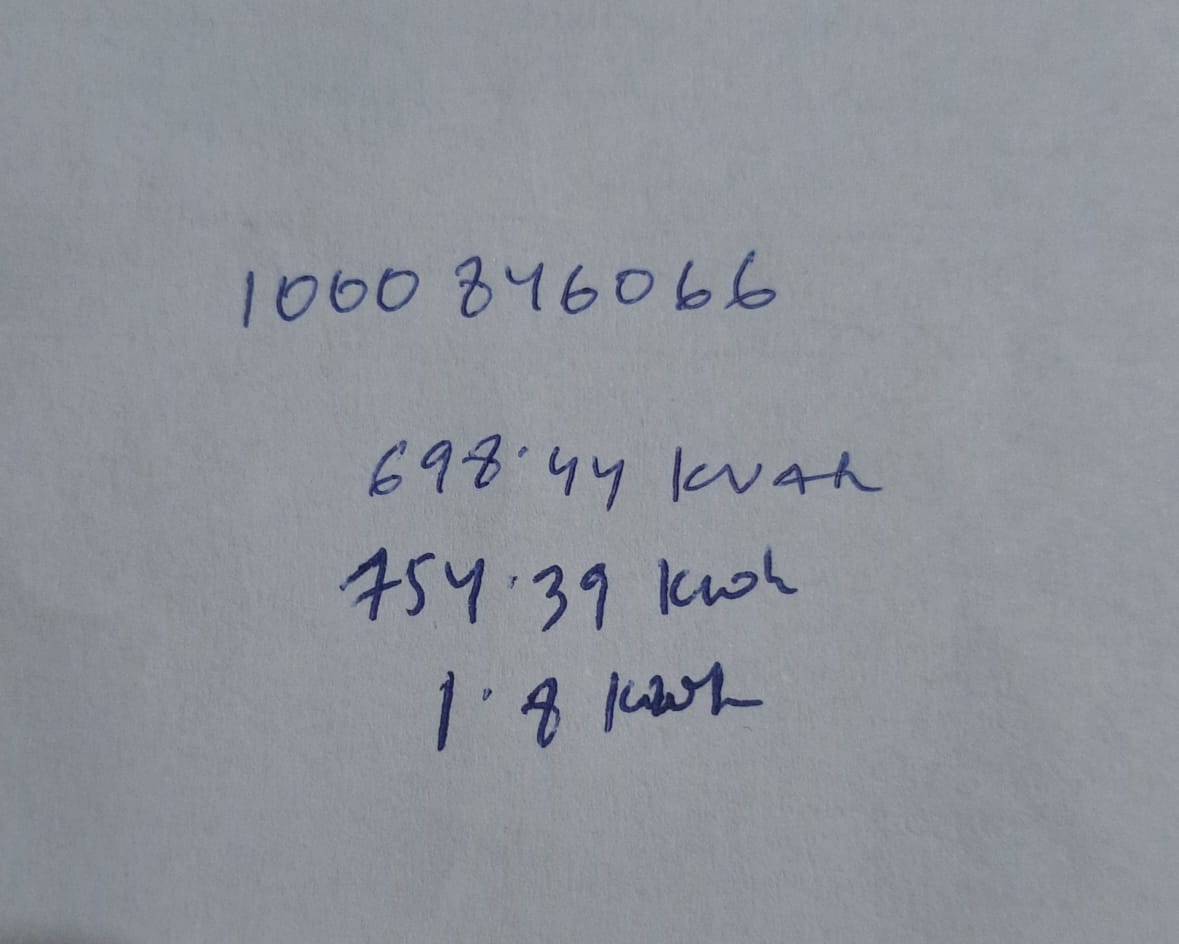 1000 846066
698.44 KVAh
754.39 Kwh
1.8 Kwh